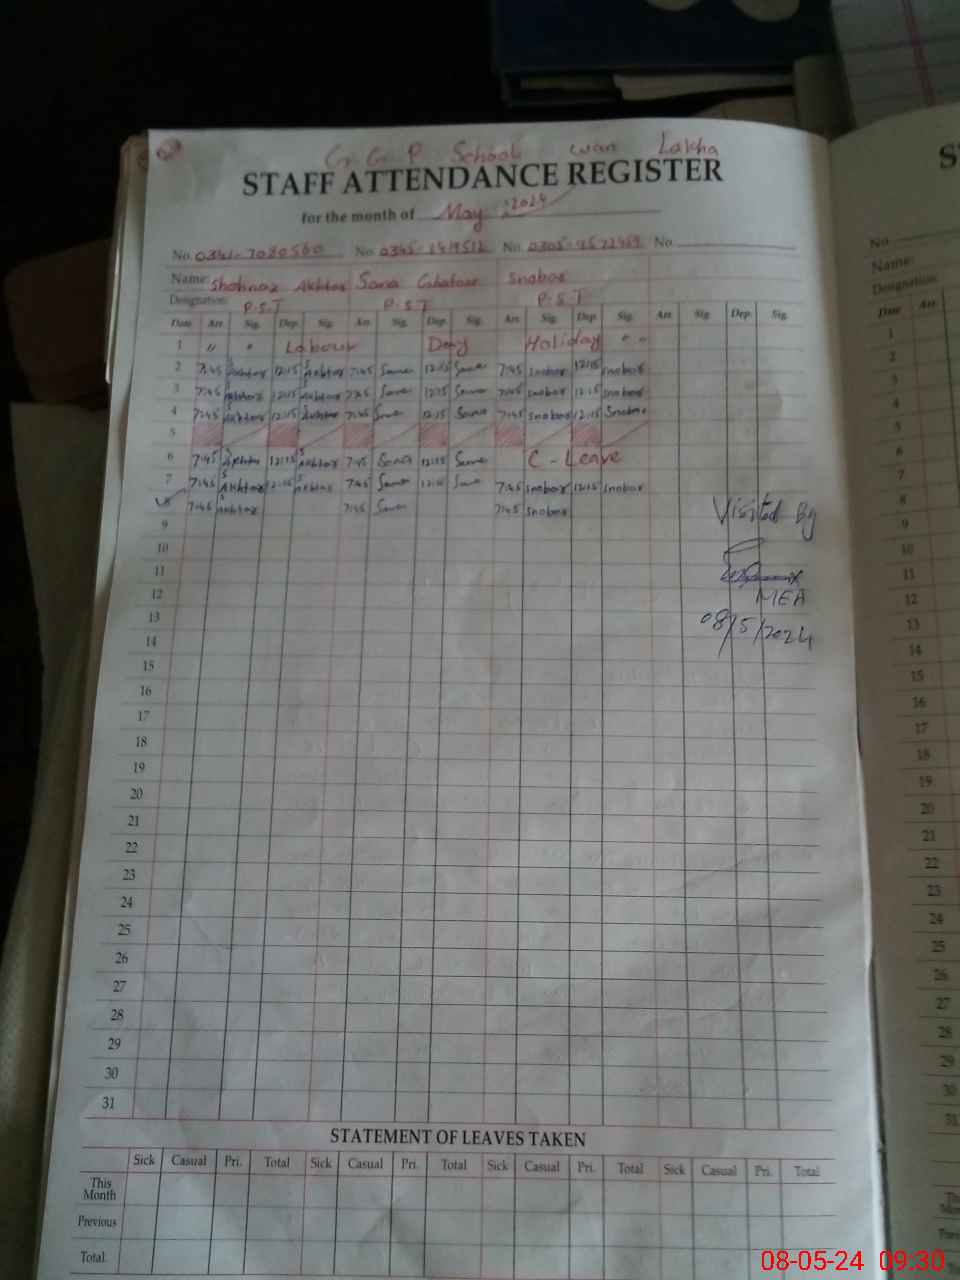 G. G. P School wan Lakha
STAFF ATTENDANCE REGISTER
for the month of May 2024
No. 0341-7080560 No. 0345- No. 0305- No.
Name: Shahnaz Akhtar Sana Snobar
Designation: P.S.T P.S.T P.S.T
Date Arr. Sig. Dep. Sig. Arr. Sig. Dep. Sig. Arr. Sig. Dep. Sig. Arr. Sig. Dep. Sig.
1 " " Labour Day Holiday " "
2 7:45 S Akhtar 12:15 S Akhtar 7:45 Sana 12:15 Sana 7:45 snobar 12:15 snobar
3 7:45 S Akhtar 12:15 S Akhtar 7:45 Sana 12:15 Sana 7:45 snobar 12:15 snobar
4 7:45 S Akhtar 12:15 S Akhtar 7:45 Sana 12:15 Sana 7:45 snobar 12:15 Snobar
5
6 7:45 S Akhtar 12:15 S Akhtar 7:45 Sana 12:15 Sana C - Leave
7 7:45 S Akhtar 12:15 S Akhtar 7:45 Sana 12:15 Sana 7:45 snobar 12:15 snobar
8 7:45 Akhtar 7:45 Sana 7:45 Snobar
Visited By
MEA
08/5/2024
9
10
11
12
13
14
15
16
17
18
19
20
21
22
23
24
25
26
27
28
29
30
31
STATEMENT OF LEAVES TAKEN
Sick Casual Pri. Total Sick Casual Pri. Total Sick Casual Pri. Total Sick Casual Pri. Total
This Month
Previous
Total.
No.
Name:
Designation:
Date Arr.
1
2
3
4
5
6
7
8
9
10
11
12
13
14
15
16
17
18
19
20
21
22
23
24
25
26
27
28
29
30
31
08-05-24 09:30